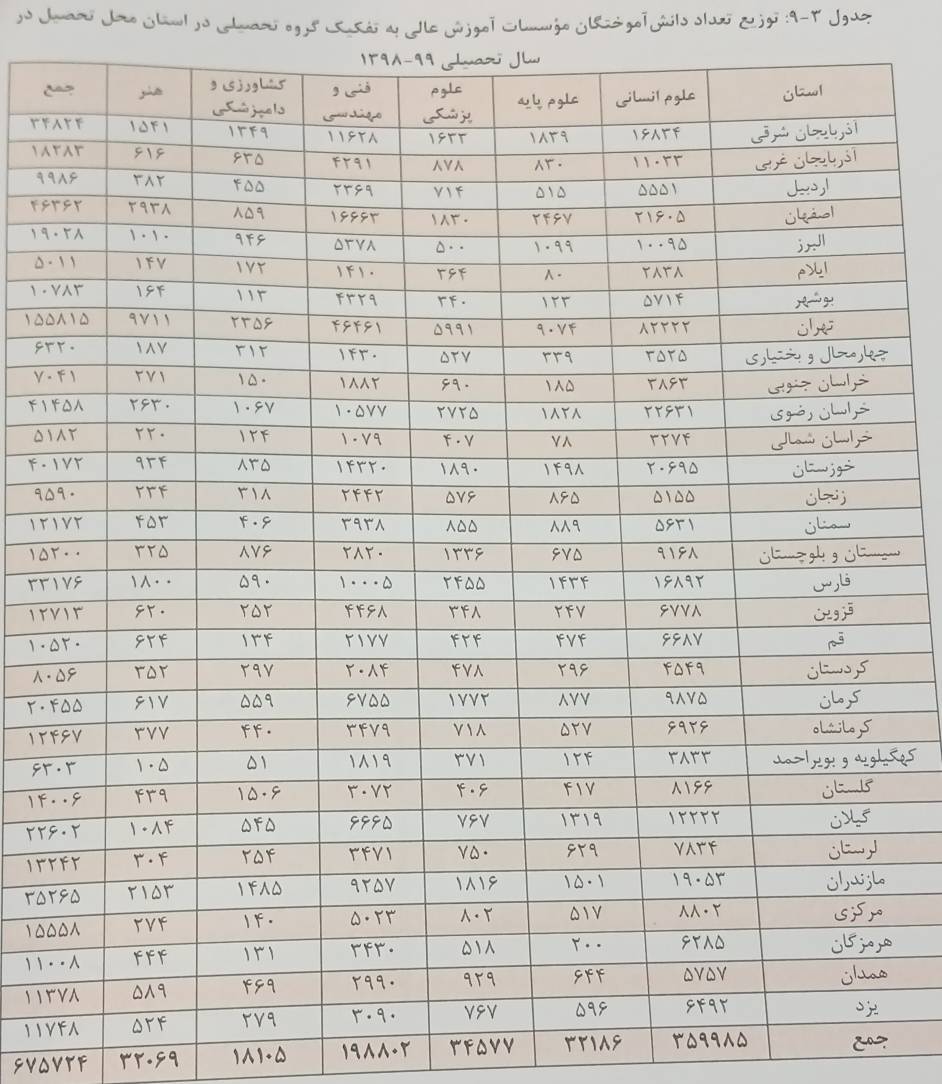 جدول ۳-۹: توزیع تعداد دانش‌آموختگان مؤسسات آموزش عالی به تفکیک گروه تحصیلی در استان محل تحصیل در
سال تحصیلی ۹۹-۱۳۹۸
استان علوم انسانی علوم پایه علوم پزشکی فنی و مهندسی کشاورزی و دامپزشکی هنر جمع
آذربایجان شرقی ۱۶۸۳۴ ۱۸۳۹ ۱۶۳۳ ۱۱۶۲۸ ۱۳۴۹ ۱۵۴۱ ۳۴۸۲۴
آذربایجان غربی ۱۱۰۳۳ ۸۳۰ ۸۷۸ ۴۲۹۱ ۶۳۵ ۶۱۶ ۱۸۲۸۳
اردبیل ۵۵۵۱ ۵۱۵ ۷۱۴ ۲۳۶۹ ۴۵۵ ۳۸۲ ۹۹۸۶
اصفهان ۲۱۶۰۵ ۲۴۶۷ ۱۸۳۰ ۱۶۶۶۳ ۸۵۹ ۲۹۳۸ ۴۶۳۶۲
البرز ۱۰۰۹۵ ۱۰۹۹ ۵۰۰ ۵۳۷۸ ۹۴۶ ۱۰۱۰ ۱۹۰۲۸
ایلام ۲۸۳۸ ۸۰ ۳۶۴ ۱۴۱۰ ۱۷۲ ۱۴۷ ۵۰۱۱
بوشهر ۵۷۱۴ ۱۲۳ ۳۴۰ ۴۳۲۹ ۱۱۳ ۱۶۴ ۱۰۷۸۳
تهران ۸۲۲۲۲ ۹۰۷۴ ۵۹۹۱ ۴۶۴۶۱ ۲۳۵۶ ۹۷۱۱ ۱۵۵۸۱۵
چهارمحال و بختیاری ۳۵۲۵ ۳۳۹ ۵۲۷ ۱۴۳۰ ۳۱۲ ۱۸۷ ۶۳۲۰
خراسان جنوبی ۳۸۶۳ ۱۸۵ ۶۹۰ ۱۸۸۲ ۱۵۰ ۲۷۱ ۷۰۴۱
خراسان رضوی ۲۲۶۳۱ ۱۸۲۸ ۲۷۲۵ ۱۰۵۷۷ ۱۰۶۷ ۲۶۳۰ ۴۱۴۵۸
خراسان شمالی ۳۲۷۴ ۷۸ ۴۰۷ ۱۰۷۹ ۱۲۴ ۲۲۰ ۵۱۸۲
خوزستان ۲۰۶۹۵ ۱۴۹۸ ۱۸۹۰ ۱۴۳۲۰ ۸۳۵ ۹۳۴ ۴۰۱۷۲
زنجان ۵۱۵۵ ۸۶۵ ۵۷۶ ۲۴۴۲ ۳۱۸ ۲۳۴ ۹۵۹۰
سمنان ۵۶۳۱ ۸۸۹ ۸۵۵ ۳۹۳۸ ۴۰۶ ۴۵۳ ۱۲۱۷۲
سیستان و بلوچستان ۹۱۶۸ ۶۷۵ ۱۳۳۶ ۲۸۲۰ ۸۷۶ ۳۲۵ ۱۵۲۰۰
فارس ۱۶۸۹۲ ۱۴۳۴ ۲۴۵۵ ۱۰۰۰۵ ۵۹۰ ۱۸۰۰ ۳۳۱۷۶
قزوین ۶۷۷۸ ۲۴۷ ۳۴۸ ۴۴۶۸ ۲۵۲ ۶۲۰ ۱۲۷۱۳
قم ۶۶۸۷ ۴۷۴ ۴۲۴ ۲۱۷۷ ۱۳۴ ۶۲۴ ۱۰۵۲۰
کردستان ۴۵۴۹ ۲۹۶ ۴۷۸ ۲۰۸۴ ۲۹۷ ۳۵۲ ۸۰۵۶
کرمان ۹۸۷۵ ۸۷۷ ۱۷۷۲ ۶۷۵۵ ۵۵۹ ۶۱۷ ۲۰۴۵۵
کرمانشاه ۶۹۲۶ ۵۲۷ ۷۱۸ ۳۴۷۹ ۴۴۰ ۳۷۷ ۱۲۴۶۷
کهگیلویه و بویراحمد ۳۸۳۳ ۱۲۴ ۳۷۱ ۱۸۱۹ ۵۱ ۱۰۵ ۶۳۰۳
گلستان ۸۱۶۶ ۴۱۷ ۴۰۶ ۳۰۷۲ ۱۵۰۶ ۴۳۹ ۱۴۰۰۶
گیلان ۱۲۲۲۲ ۱۳۱۹ ۷۶۷ ۶۶۶۵ ۵۴۵ ۱۰۸۴ ۲۲۶۰۲
لرستان ۷۸۳۴ ۶۲۹ ۷۵۰ ۳۴۷۱ ۲۵۴ ۳۰۴ ۱۳۲۴۲
مازندران ۱۹۰۵۳ ۱۵۰۱ ۱۸۱۶ ۹۲۵۷ ۱۴۸۵ ۲۱۵۳ ۳۵۲۶۵
مرکزی ۸۸۰۲ ۵۱۷ ۸۰۲ ۵۰۲۳ ۱۴۰ ۲۷۴ ۱۵۵۵۸
هرمزگان ۶۲۸۵ ۲۰۰ ۵۱۸ ۳۴۳۰ ۱۳۱ ۴۴۴ ۱۱۰۰۸
همدان ۵۷۵۷ ۶۴۴ ۹۲۹ ۲۹۹۰ ۴۶۹ ۵۸۹ ۱۱۳۷۸
یزد ۶۴۹۲ ۵۹۶ ۷۶۷ ۳۰۹۰ ۲۷۹ ۵۲۴ ۱۱۷۴۸
جمع ۳۵۹۹۸۵ ۳۳۱۸۶ ۳۴۵۷۷ ۱۹۸۸۰۲ ۱۸۱۰۵ ۳۲۰۶۹ ۶۷۵۷۲۴